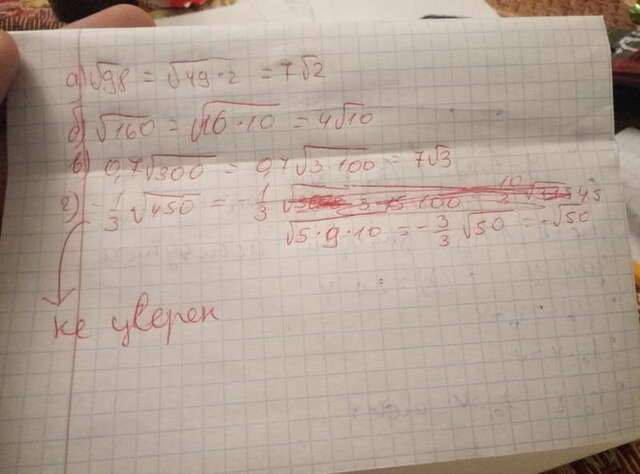 а) √98 = √49·2 = 7√2
б) √160 = √16·10 = 4√10
в) 0,7√300 = 0,7√3·100 = 7√3
г) -1/3 √450 = -1/3
√5·9·10 = -3/3 √50 = -√50
не уверен